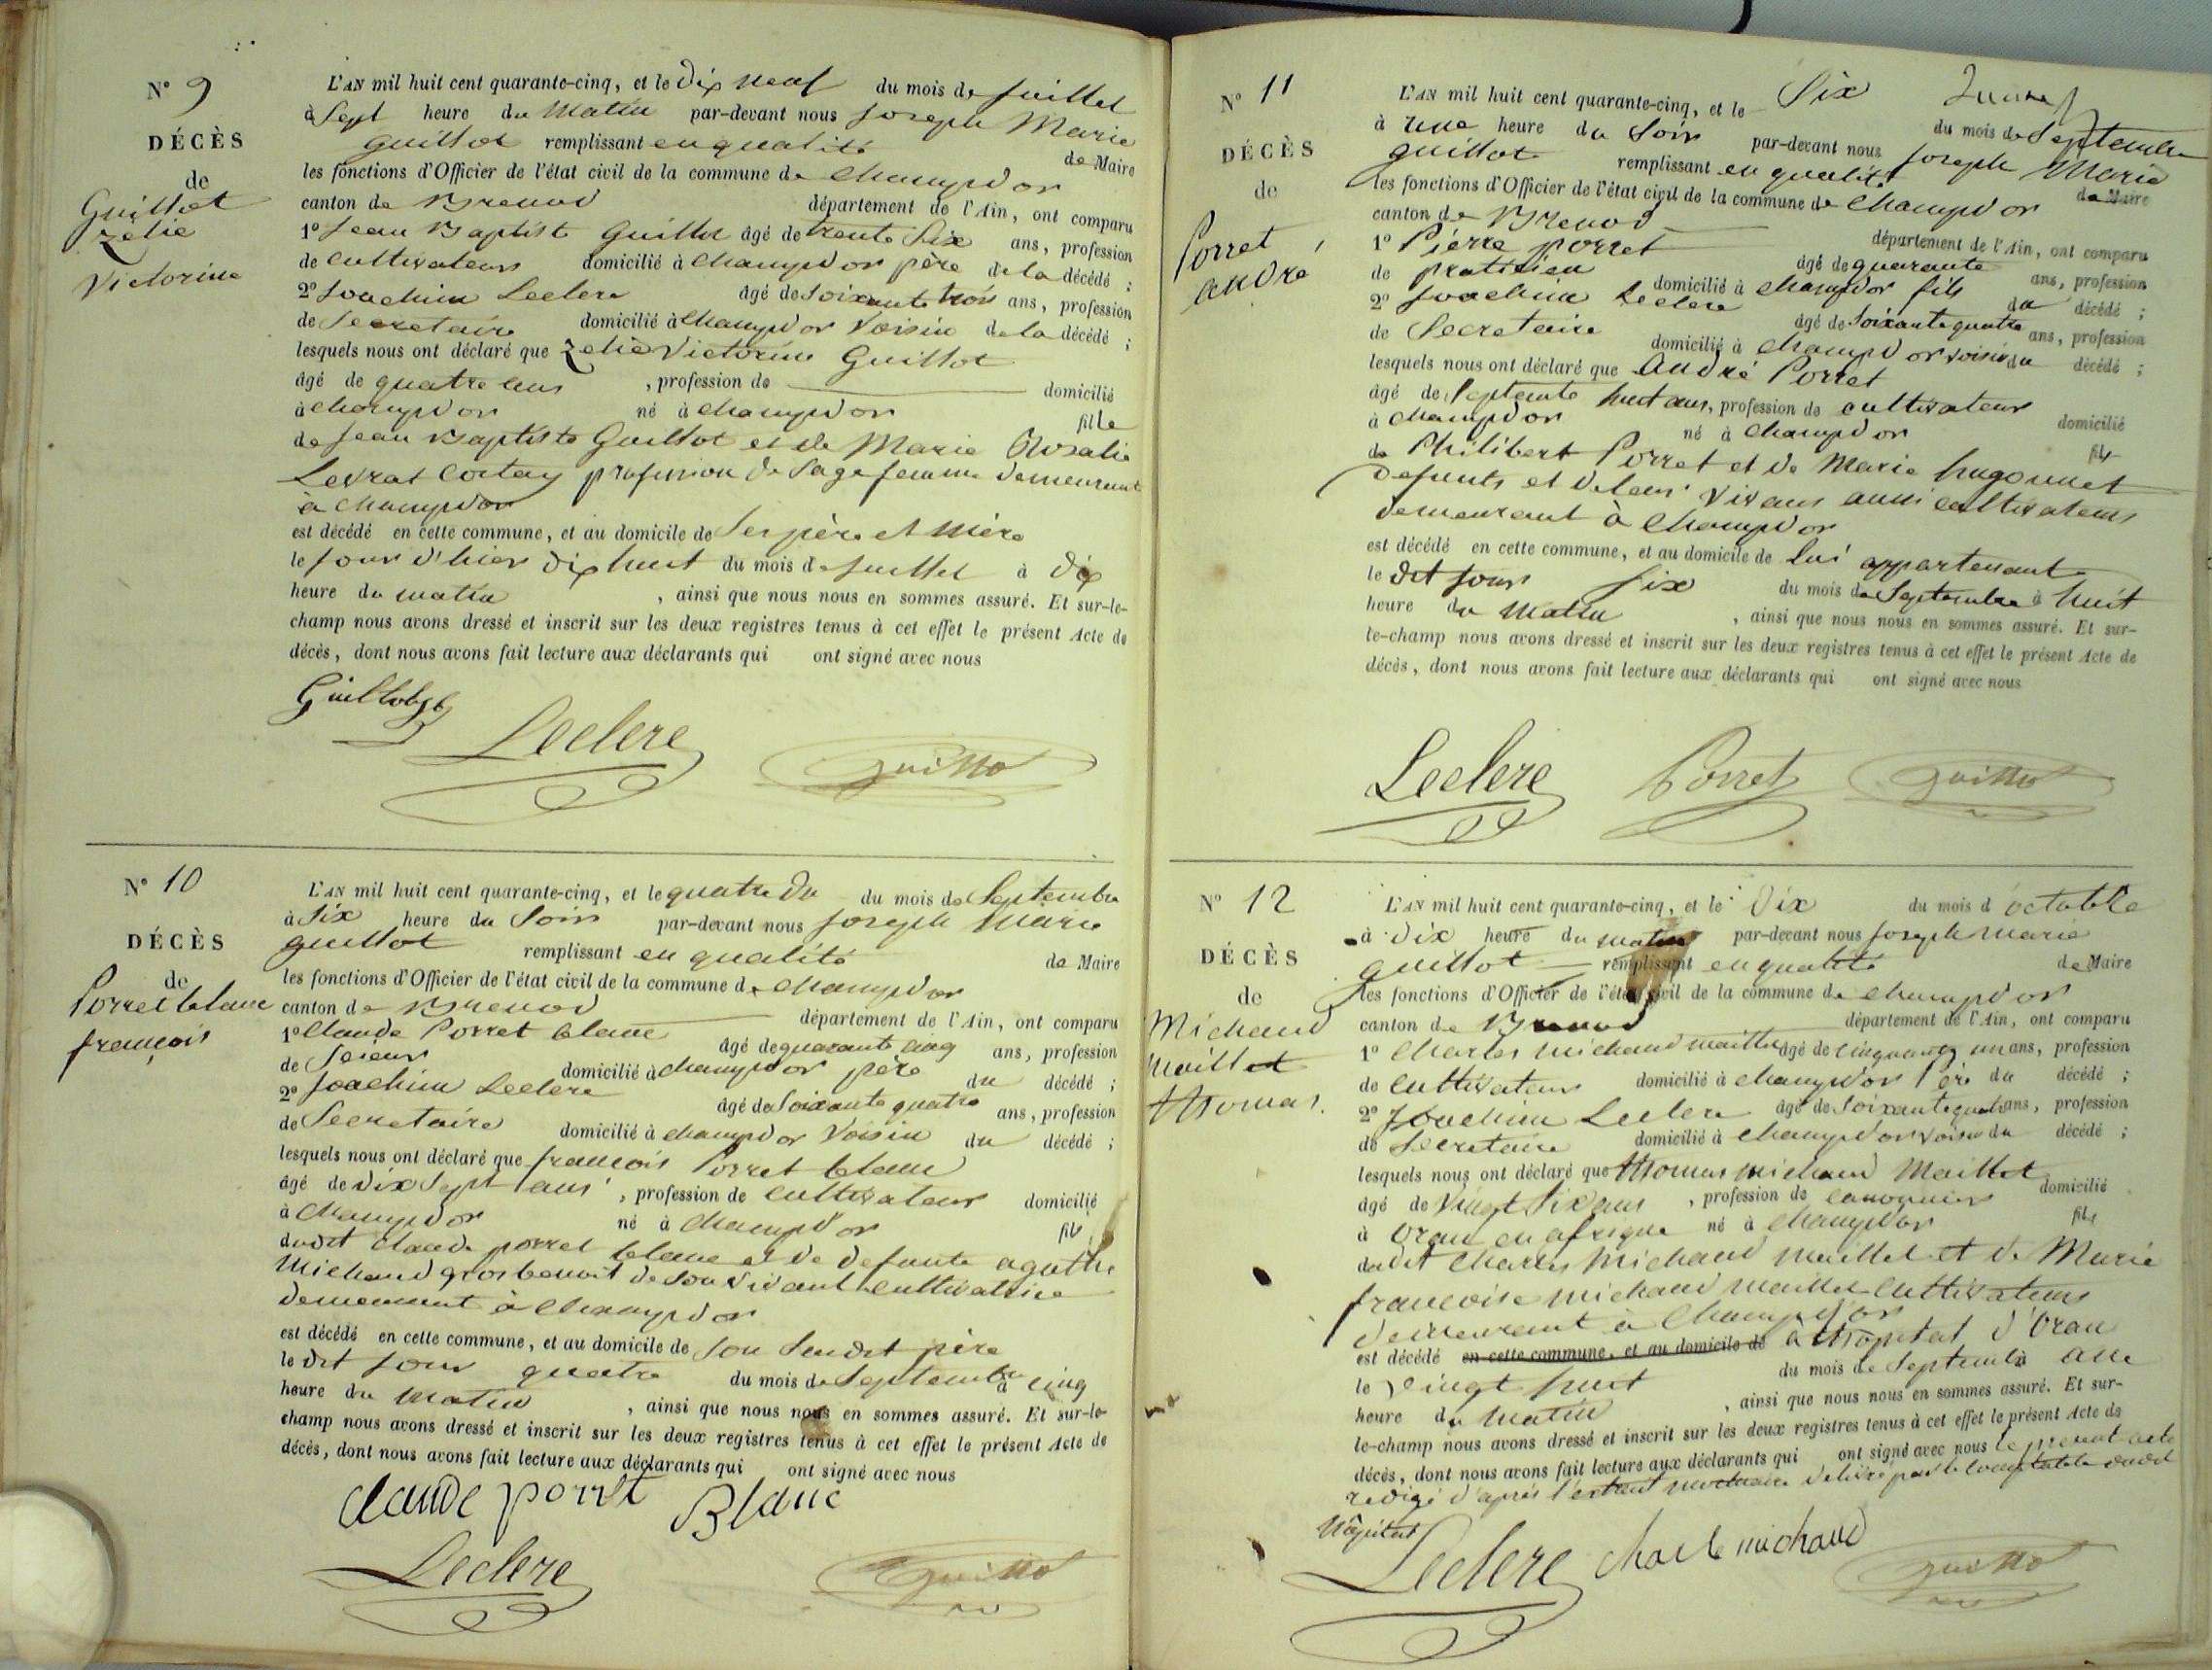 N° 9
DÉCÈS
de
Guillot
zelie
Victorine
L'AN mil huit cent quarante-cinq, et le dix neuf du mois de juillet
à Sept heure du matin par-devant nous joseph Marie
guillot remplissant en qualité de Maire
les fonctions d'Officier de l'état civil de la commune de champdor
canton de Brenod département de l'Ain, ont comparu
1° Jean Baptiste Guillot âgé de trente Six ans, profession
de cultivateur domicilié à champdor père de la décédé ;
2° Joachim Leclere âgé de Soixante trois ans, profession
de Secretaire domicilié à champdor Voisin de la décédé ;
lesquels nous ont déclaré que zelie Victorine Guillot
âgé de quatre ans , profession de domicilié
à champdor né à champdor fille
de Jean Baptiste Guillot et de Marie Rosalie
Levrat Cotay profession de Sage femme demeurant
à champdor
est décédé en cette commune, et au domicile de Ses père et mère
le jour d'hier dix huit du mois de juillet à dix
heure du matin , ainsi que nous nous en sommes assuré. Et sur-le-
champ nous avons dressé et inscrit sur les deux registres tenus à cet effet le présent Acte de
décès, dont nous avons fait lecture aux déclarants qui ont signé avec nous
Leclere guillot
N° 10
DÉCÈS
de
Porret blanc
françois
L'AN mil huit cent quarante-cinq, et le quatre du du mois de Septembre
à Six heure du Soir par-devant nous joseph Marie
guillot remplissant en qualité de Maire
les fonctions d'Officier de l'état civil de la commune de champdor
canton de Brenod département de l'Ain, ont comparu
1° Claude Porret blanc âgé de quarante cinq ans, profession
de Scieur domicilié à champdor père du décédé ;
2° Joachim Leclere âgé de Soixante quatre ans, profession
de Secretaire domicilié à champdor Voisin du décédé ;
lesquels nous ont déclaré que françois Porret blanc
âgé de dix Sept ans , profession de cultivateur domicilié
à champdor né à champdor fils
dudit claude porret blanc et de defunte agathe
Michaud gros benoit de Son Vivant cultivatrice
demeurant à champdor
est décédé en cette commune, et au domicile de Son Susdit père
le dit jour quatre du mois de Septembre à cinq
heure du matin , ainsi que nous nous en sommes assuré. Et sur-le-
champ nous avons dressé et inscrit sur les deux registres tenus à cet effet le présent Acte de
décès, dont nous avons fait lecture aux déclarants qui ont signé avec nous
Claude porret Blanc
Leclere guillot
N° 11
DÉCÈS
de
Porret
andré
L'AN mil huit cent quarante-cinq, et le Six
du mois de Septembre
à une heure du Soir par-devant nous joseph Marie
guillot remplissant en qualité de Maire
les fonctions d'Officier de l'état civil de la commune de champdor
canton de Brenod département de l'Ain, ont comparu
1° Pierre porret âgé de quarante ans, profession
de praticien domicilié à champdor fils du décédé ;
2° Joachim Leclere âgé de Soixante quatre ans, profession
de Secretaire domicilié à champdor voisin du décédé ;
lesquels nous ont déclaré que André Porret
âgé de Septente huit ans, profession de cultivateur domicilié
à champdor né à champdor fils
de Philibert Porret et de Marie hugonnet
defunts et de leur vivans aussi cultivateurs
demeurant à champdor
est décédé en cette commune, et au domicile de lui appartenant
le dit jour Six du mois de Septembre à huit
heure du Matin , ainsi que nous nous en sommes assuré. Et sur-
le-champ nous avons dressé et inscrit sur les deux registres tenus à cet effet le présent Acte de
décès, dont nous avons fait lecture aux déclarants qui ont signé avec nous
Leclere Porret guillot
N° 12
DÉCÈS
de
Michaud
Maillet
thomas.
L'AN mil huit cent quarante-cinq, et le Dix du mois d'octobre
à Dix heure du matin par-devant nous joseph marie
guillot remplissant en qualité de Maire
les fonctions d'Officier de l'état civil de la commune de champdor
canton de Brenod département de l'Ain, ont comparu
1° Charles michaud maillet âgé de cinquante un ans, profession
de cultivateur domicilié à champdor Père du décédé ;
2° Joachim Leclere âgé de Soixante quatre ans, profession
de Secretaire domicilié à champdor voisin du décédé ;
lesquels nous ont déclaré que thomas michaud Maillet
âgé de Vingt Six ans , profession de canonnier domicilié
à Oran en afrique né à champdor fils
dudit Charles Michaud maillet et de Marie
françoise michaud maillet cultivateurs
demeurant à Champdor
est décédé en cette commune, et au domicile de à l'hopital d'Oran
le Vingt huit du mois de Septembre à une
heure du matin , ainsi que nous nous en sommes assuré. Et sur-
le-champ nous avons dressé et inscrit sur les deux registres tenus à cet effet le présent Acte de
décès, dont nous avons fait lecture aux déclarants qui ont signé avec nous le present acte
redigé d'après l'extrait mortuaire delivré par le comptable dudit
hôpital
Leclere charle michaud guillot